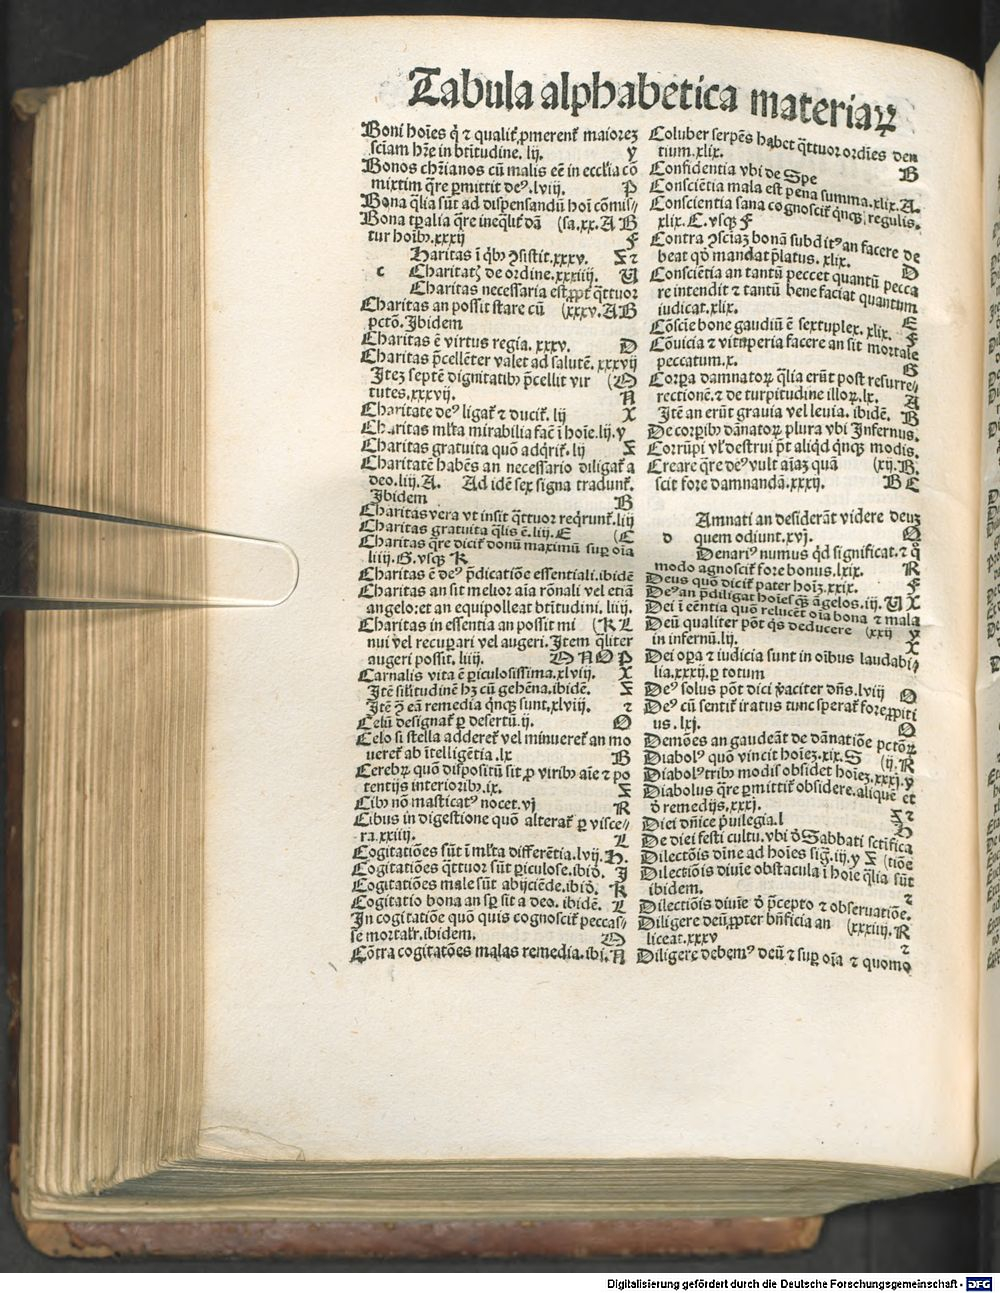 Tabula alphabetica materiaꝝ
Boni hoīes q̄ ⁊ qualit̄ ꝓmerent̄ maiorez
sciam hr̄e in btītudine. lij. y
Bonos chr̄ianos cū malis eē in eccl̄ia cō
mixtim q̄re ꝑmittit deꝰ. lviij. P
Bona q̄lia sūt ad dispensandū hoī cōmis⸗
Bona tꝑalia q̄re ineq̄lit̄ dā (sa. xx. A B
tur hoībꝫ. xxxij F
Haritas ī q̄bꝫ ꝯsistit. xxxv. Z ⁊
c Charitatꝫ de ordine. xxxiiij. U
Charitas necessaria est ꝓpt̄ q̄ttuor
Charitas an possit stare cū (xxxv. A B
pctō. Ibidem
Charitas ē virtus regia. xxxv. D
Charitas p̄cellēter valet ad salutē. xxxvij
Itez septē dignitatibꝫ p̄cellit vir (M
tutes. xxxvij. N
Charitate deꝰ ligat̄ ⁊ ducit̄. lij X
Charitas ml̄ta mirabilia facē ī hoīe. lij. y
Charitas gratuita quō adq̄rit̄. lij Z
Charitatē habēs an necessario diligat̄ a
deo. liij. A. Ad idē sex signa tradunt̄.
Ibidem B
Charitas vera vt insit q̄ttuor reqr̄unt̄. liij
Charitas gratuita q̄lis ē. liij. E (C
Charitas q̄re dicit̄ donū maximū suꝑ oīa
liiij. G. vsqꝫ K
Charitas ē deꝰ p̄dicatiōe essentiali. ibidē
Charitas an sit melior aīa rōnali vel etiā
angelo: et an equipolleat btītudini. liiij.
Charitas in essentia an possit mi (K L
nui vel recuꝑari vel augeri. Item q̄liter
augeri possit. liiij. M N O P
Carnalis vita ē ꝑiculosissima. xlviij. X
Itē sil̄itudinē hꝫ cū gehēna. ibidē. Z
Itē ꝯ eā remedia q̄nqꝫ sunt. xlviij. ⁊
Celū designat̄ ꝑ desertū. ij. O
Celo si stella adderet̄ vel minueret̄ an mo
ueret̄ ab ītelligētia. lx B
Cerebꝝ quō dispositū sit ꝓ viribꝫ aīe ⁊ po
tentijs interioribꝫ. ix. Z
Cibꝫ nō masticatꝰ nocet. vj R
Cibus in digestione quō alterat̄ ꝑ visce⸗
ra. xxiiij. L
Cogitatiōes sūt ī ml̄ta differētia. lvij. H.
Cogitatiōes q̄ttuor sūt ꝑiculose. ibid̄. J
Cogitatiōes male sūt abijciēde. ibid̄. K
Cogitatio bona an sꝑ sit a deo. ibidē. L
In cogitatiōe quō quis cognoscit̄ peccas⸗
se mortalr̄. ibidem. M
Cōtra cogitatōes malas remedia. ibi. N
Coluber serpēs habet q̄ttuor ordīes den
tium. xlix. B
Confidentia vbi de Spe
Consciētia mala est pena summa. xlix. A.
Conscientia sana cognoscit̄ q̄nqꝫ regulis.
xlix. C. vsqꝫ F
Contra ꝯsciaz bonā subditꝰ an facere de
beat qd̄ mandat p̄latus. xlix. D
Consciētia an tantū peccet quantū pecca
re intendit ⁊ tantū bene faciat quantum
iudicat. xlix. E
Cōscīe bone gaudiū ē sextuplex. xlix. F
Cōuicia ⁊ vituperia facere an sit mortale
peccatum. x. G
Corꝑa damnatoꝝ q̄lia erūt post resurre⸗
rectionē. ⁊ de turpitudine illoꝝ. lx. A
Itē an erūt grauia vel leuia. ibidē. B
De corꝑibꝫ dānatoꝝ plura vbi Infernus.
Corrūpi vl̄ destrui p̄t aliqd̄ q̄nqꝫ modis.
Creare q̄re deꝰ vult aīaz quā (xij. B.
scit fore damnandā. xxxij. B C
Amnati an desiderāt videre deuz
d quem odiunt. xvj. O
Denariꝰ numus qd̄ significat. ⁊ q̊
modo agnoscit̄ fore bonus. lxix. R
Deus quō dicit̄ pater hoīꝫ. xxix. F
Deꝰ an p̄diligat hoīes qꝫ āgelos. iij. U X
Dei ī eēntia quō relucēt oīa bona ⁊ mala
Deū qualiter pōt q̄s deducere (xxij y
in infernū. lij. X
Dei oꝑa ⁊ iudicia sunt in oībus laudabi⸗
lia. xxxij. ꝑ totum
Deꝰ solus pōt dici v̄aciter dn̄s. lviij O
Deꝰ cū sentit̄ iratus tunc sperat̄ fore ꝓpiti
us. lxj. O
Demōes an gaudeāt de dānatiōe pctōꝝ
Diabolꝰ quō vincit hoīez. xix. S (ij. R
Diabolꝰ tribꝫ modis obsidet hoīez. xxxj. y
Diabolus q̄re ꝑmittit̄ obsidere. alique et
d̄ remedijs. xxxj. Z ⁊
Diei dn̄ice p̄uilegia. l h
De diei festi cultu. vbi d̄ Sabbati sctifica
Dilectōis dīne ad hoīes sig̅. iij. y Z (tiōe
Dilectiōis diuīe obstacula ī hoīe q̄lia sūt
ibidem. ⁊
Dilectiōis diuīe d̄ p̄cepto ⁊ obseruatiōe.
Diligere deū ꝓpter bn̄ficia an (xxxiiij. R
liceat. xxxv ⁊
Diligere debemꝰ deū ⁊ suꝑ oīa ⁊ quomo
Digitalisierung gefördert durch die Deutsche Forschungsgemeinschaft - DFG